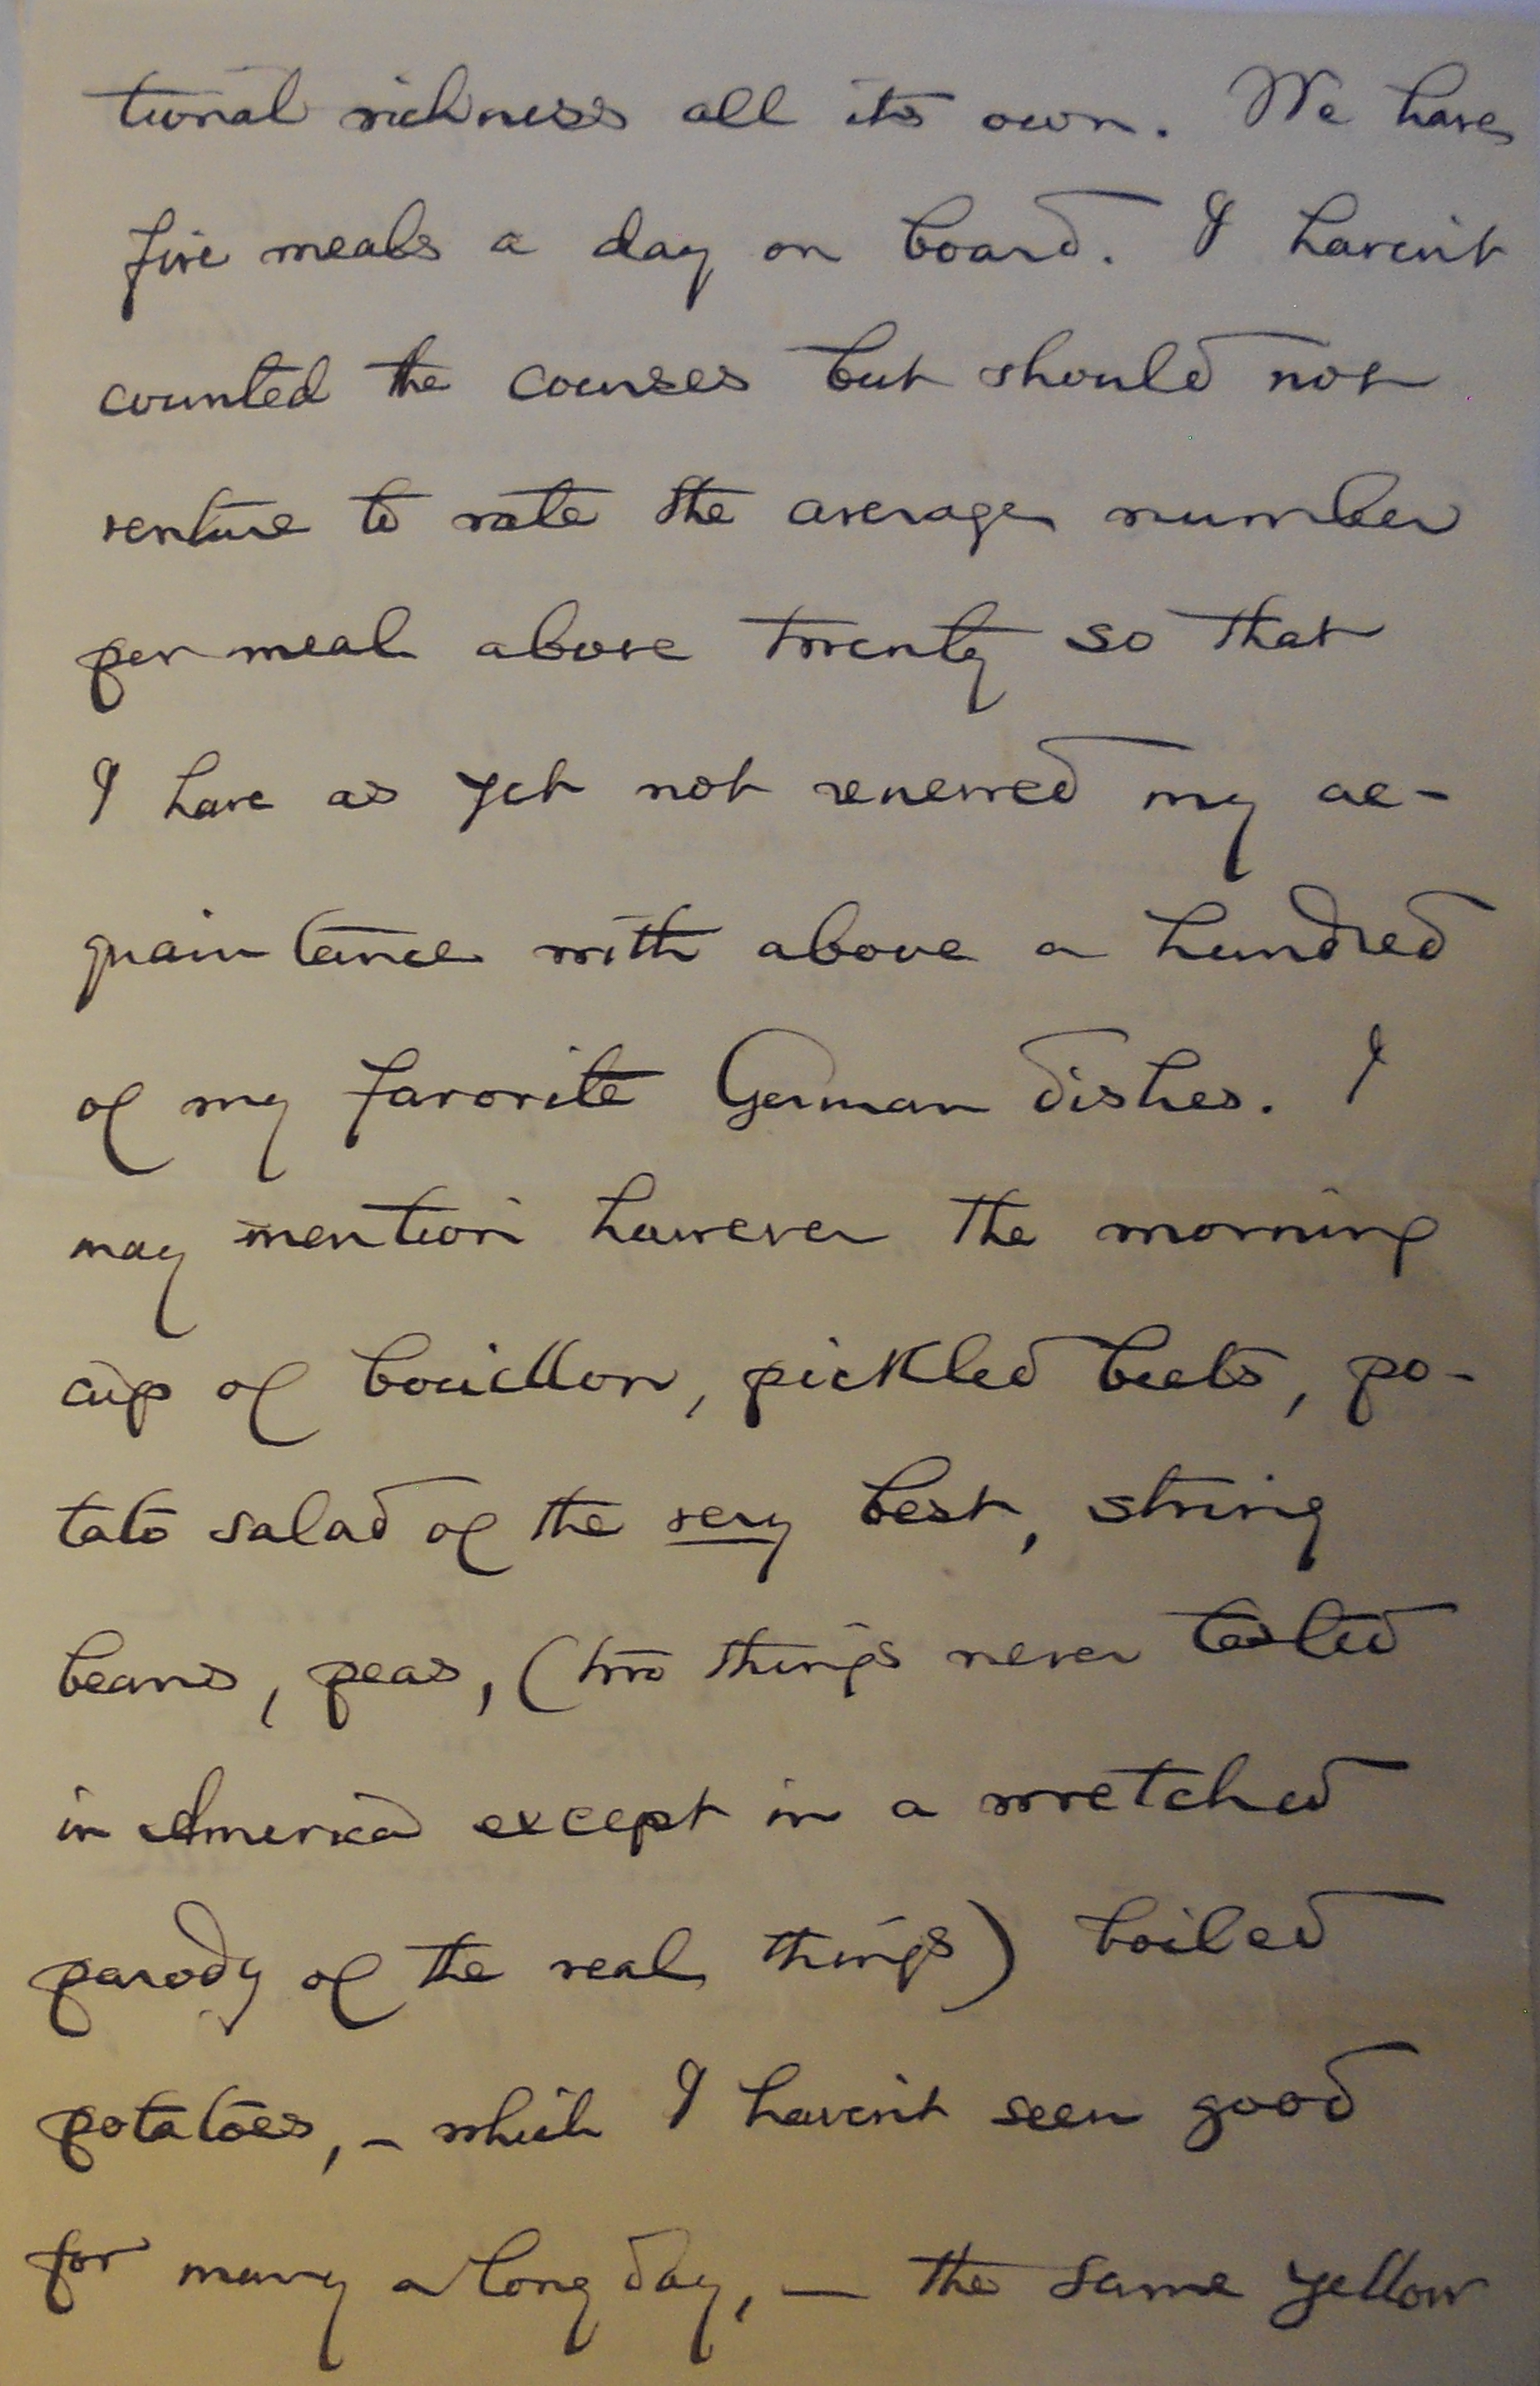 tional richness all its own. We have
five meals a day on board. I haven't
counted the courses but should not
venture to rate the average number
per meal above twenty so that
I have as yet not renewed my ac-
quaintance with above a hundred
of my favorite German dishes. I
may mention however the morning
cup of bouillon, pickled beets, po-
tato salad of the very best, string
beans, peas, (two things never tasted
in America except in a wretched
parody of the real things) boiled
potatoes, – which I haven't seen good
for many a long day, — the same yellow